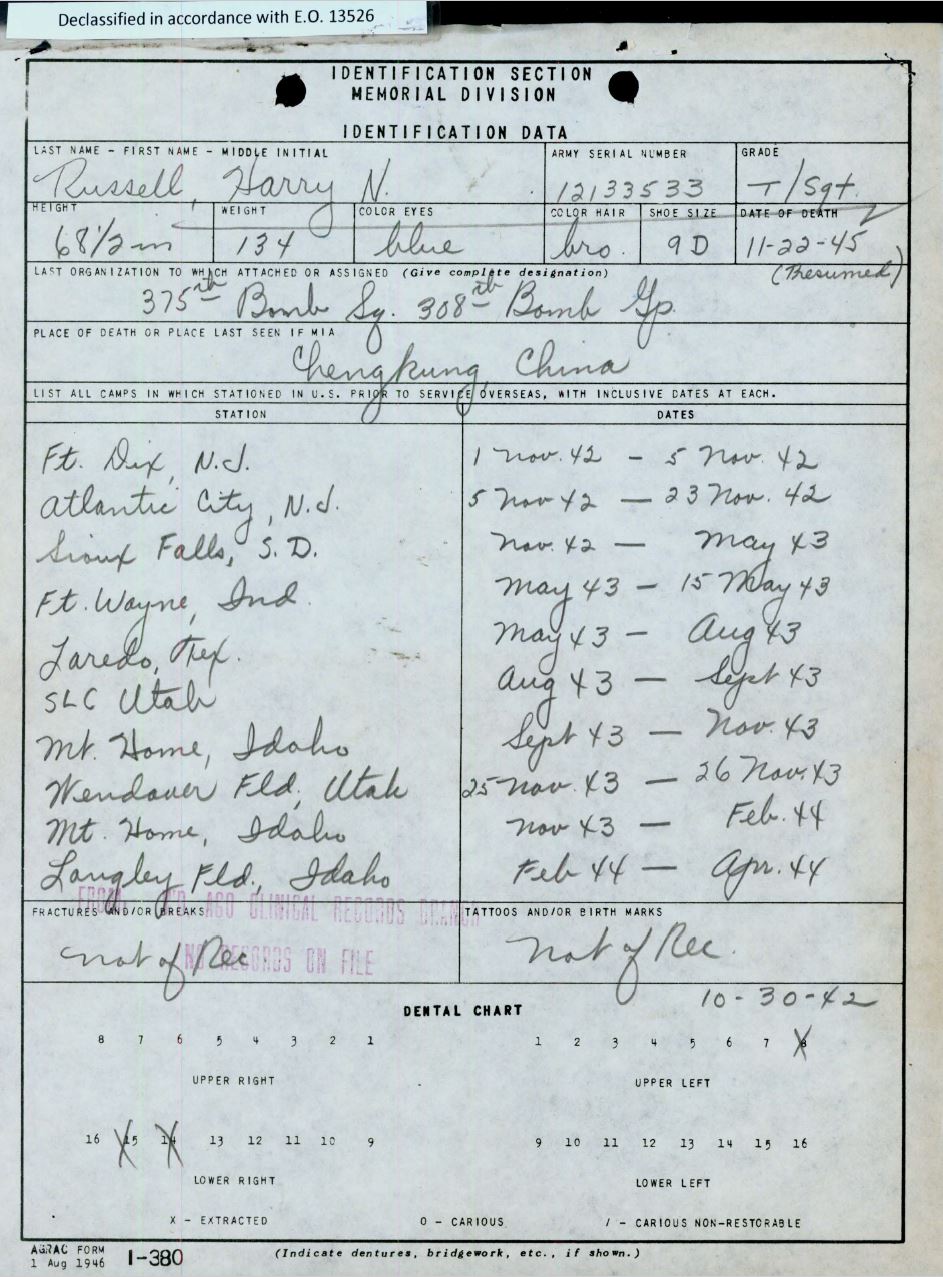 Declassified in accordance with E.O. 13526
IDENTIFICATION SECTION
MEMORIAL DIVISION
IDENTIFICATION DATA
LAST NAME - FIRST NAME - MIDDLE INITIAL ARMY SERIAL NUMBER GRADE
Russell, Harry N. 12133533 T/Sgt.
HEIGHT WEIGHT COLOR EYES COLOR HAIR SHOE SIZE DATE OF DEATH
68 1/2 in 134 blue bro. 9D 11-22-45
(Presumed)
LAST ORGANIZATION TO WHICH ATTACHED OR ASSIGNED (Give complete designation)
375th Bomb Sq. 308th Bomb Gp.
PLACE OF DEATH OR PLACE LAST SEEN IF MIA
Chengkung, China
LIST ALL CAMPS IN WHICH STATIONED IN U.S. PRIOR TO SERVICE OVERSEAS, WITH INCLUSIVE DATES AT EACH.
STATION DATES
Ft. Dix, N.J. 1 Nov. 42 - 5 Nov. 42
Atlantic City, N.J. 5 Nov 42 - 23 Nov. 42
Sioux Falls, S.D. Nov. 42 - May 43
Ft. Wayne, Ind. May 43 - 15 May 43
Laredo, Tex. May 43 - Aug 43
SLC Utah Aug 43 - Sept 43
Mt. Home, Idaho Sept 43 - Nov. 43
Wendover Fld, Utah 25 Nov. 43 - 26 Nov. 43
Mt. Home, Idaho Nov 43 - Feb. 44
Langley Fld., Idaho Feb 44 - Apr. 44
FROM AGO CLINICAL RECORDS BRANCH
FRACTURES AND/OR BREAKS TATTOOS AND/OR BIRTH MARKS
not of Rec not of Rec.
NO RECORDS ON FILE
10-30-42
DENTAL CHART
8 7 6 5 4 3 2 1 1 2 3 4 5 6 7 8
UPPER RIGHT UPPER LEFT
16 15 14 13 12 11 10 9 9 10 11 12 13 14 15 16
LOWER RIGHT LOWER LEFT
X - EXTRACTED O - CARIOUS / - CARIOUS NON-RESTORABLE
AGRAC FORM
1 Aug 1946 1-380 (Indicate dentures, bridgework, etc., if shown.)